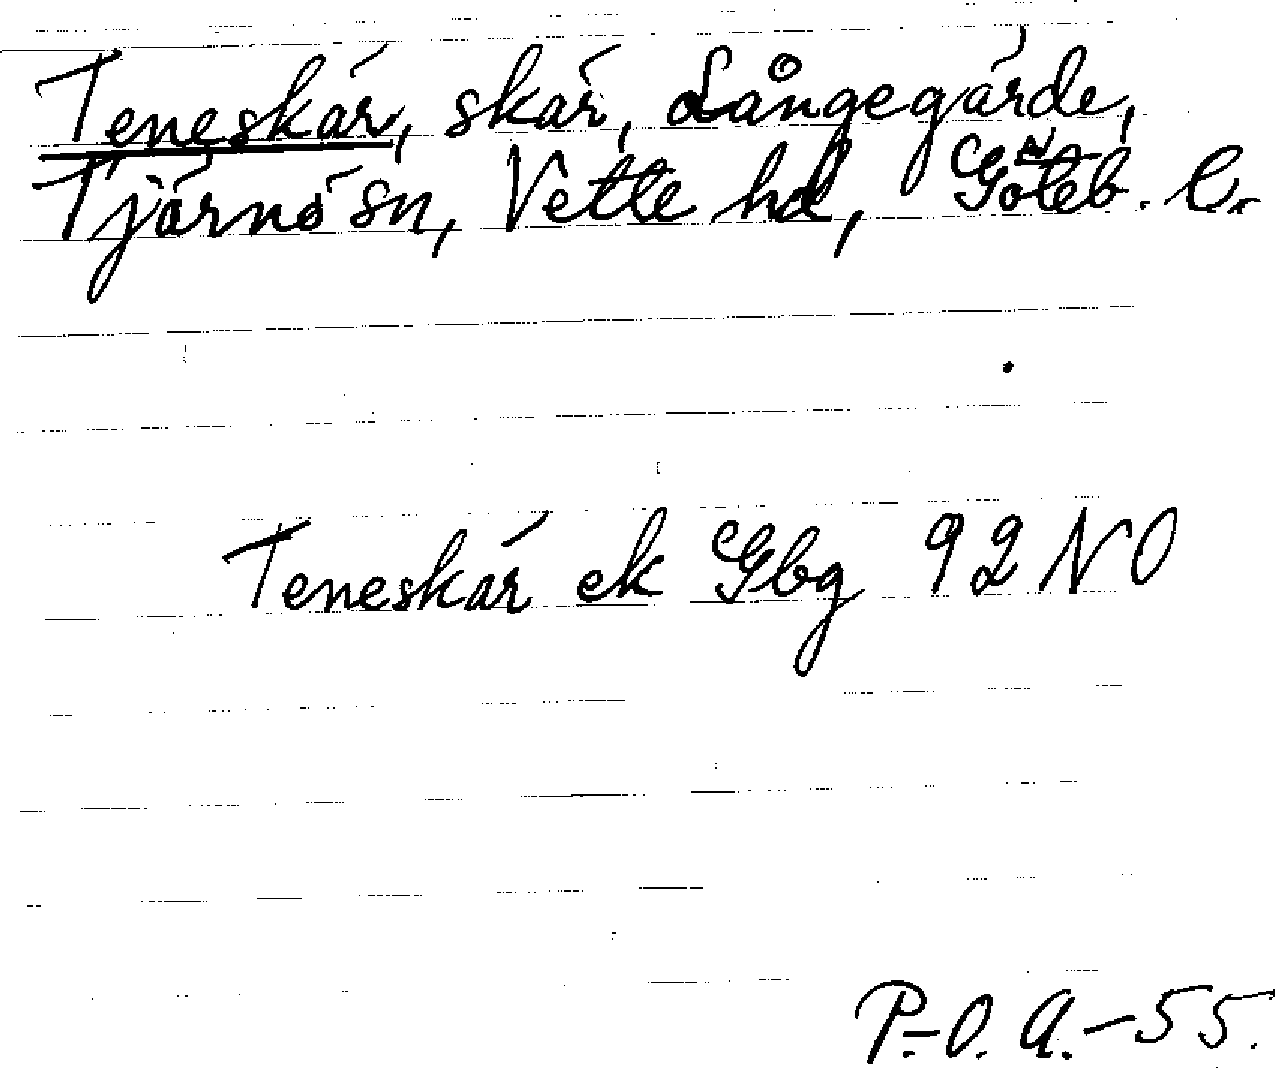 Teneskär, skär, Långegärde,
Tjärnö sn, Vette hd, Göteb. l.
Teneskär ek Gbg 92 NO
P.-O. A.-55.